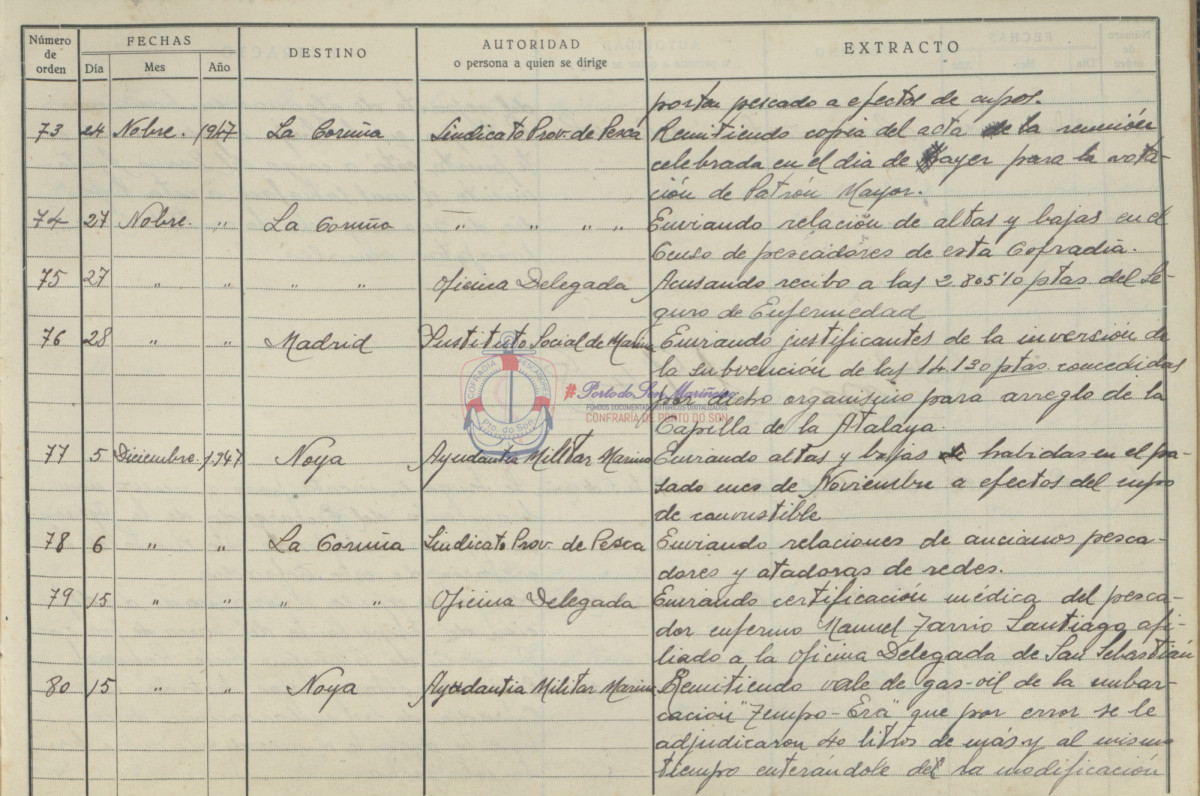 Número de orden FECHAS DESTINO AUTORIDAD o persona a quien se dirige EXTRACTO
Día Mes Año
portan pescado a efectos de cupos.
73 24 Nobre. 1947 La Coruña Sindicato Prov. de Pesca Remitiendo copia del acta de la reunión
celebrada en el dia de ayer para la vota-
ción de Patrón Mayor.
74 27 Nobre. " La Coruña " " " " Enviando relación de altas y bajas en el
Censo de pescadores de esta Cofradía.
75 27 " " " " Oficina Delegada Acusando recibo a las 2.805'10 ptas. del Se-
guro de Enfermedad
76 28 " " Madrid Instituto Social de Marina Enviando justificantes de la inversión de
la subvención de las 14.130 ptas. concedidas
por dicho organismo para arreglo de la
Capilla de la Atalaya.
77 5 Diciembre 1.947 Noya Ayudantia Militar Marina Enviando altas y bajas habidas en el pa-
sado mes de Noviembre a efectos del cupo
de convustible
78 6 " " La Coruña Sindicato Prov. de Pesca Enviando relaciones de ancianos pesca-
dores y atadoras de redes.
79 15 " " " " Oficina Delegada Enviando certificación médica del pesca-
dor enfermo Manuel Santiago, afi-
liado a la Oficina Delegada de San Sebastián
80 15 " " Noya Ayudantia Militar Marina Remitiendo vale de gas-oil de la embar-
cación "Tempo-Era" que por error se le
adjudicaron 40 litros de más y al mismo
tiempo enterándole de la modificación
COFRADIA PESCADORES
Pto. do Son
#Porto do Son Mariñeiro
FONDOS DOCUMENTAIS HISTÓRICOS DIXITALIZADOS
CONFRARÍA DE PORTO DO SON